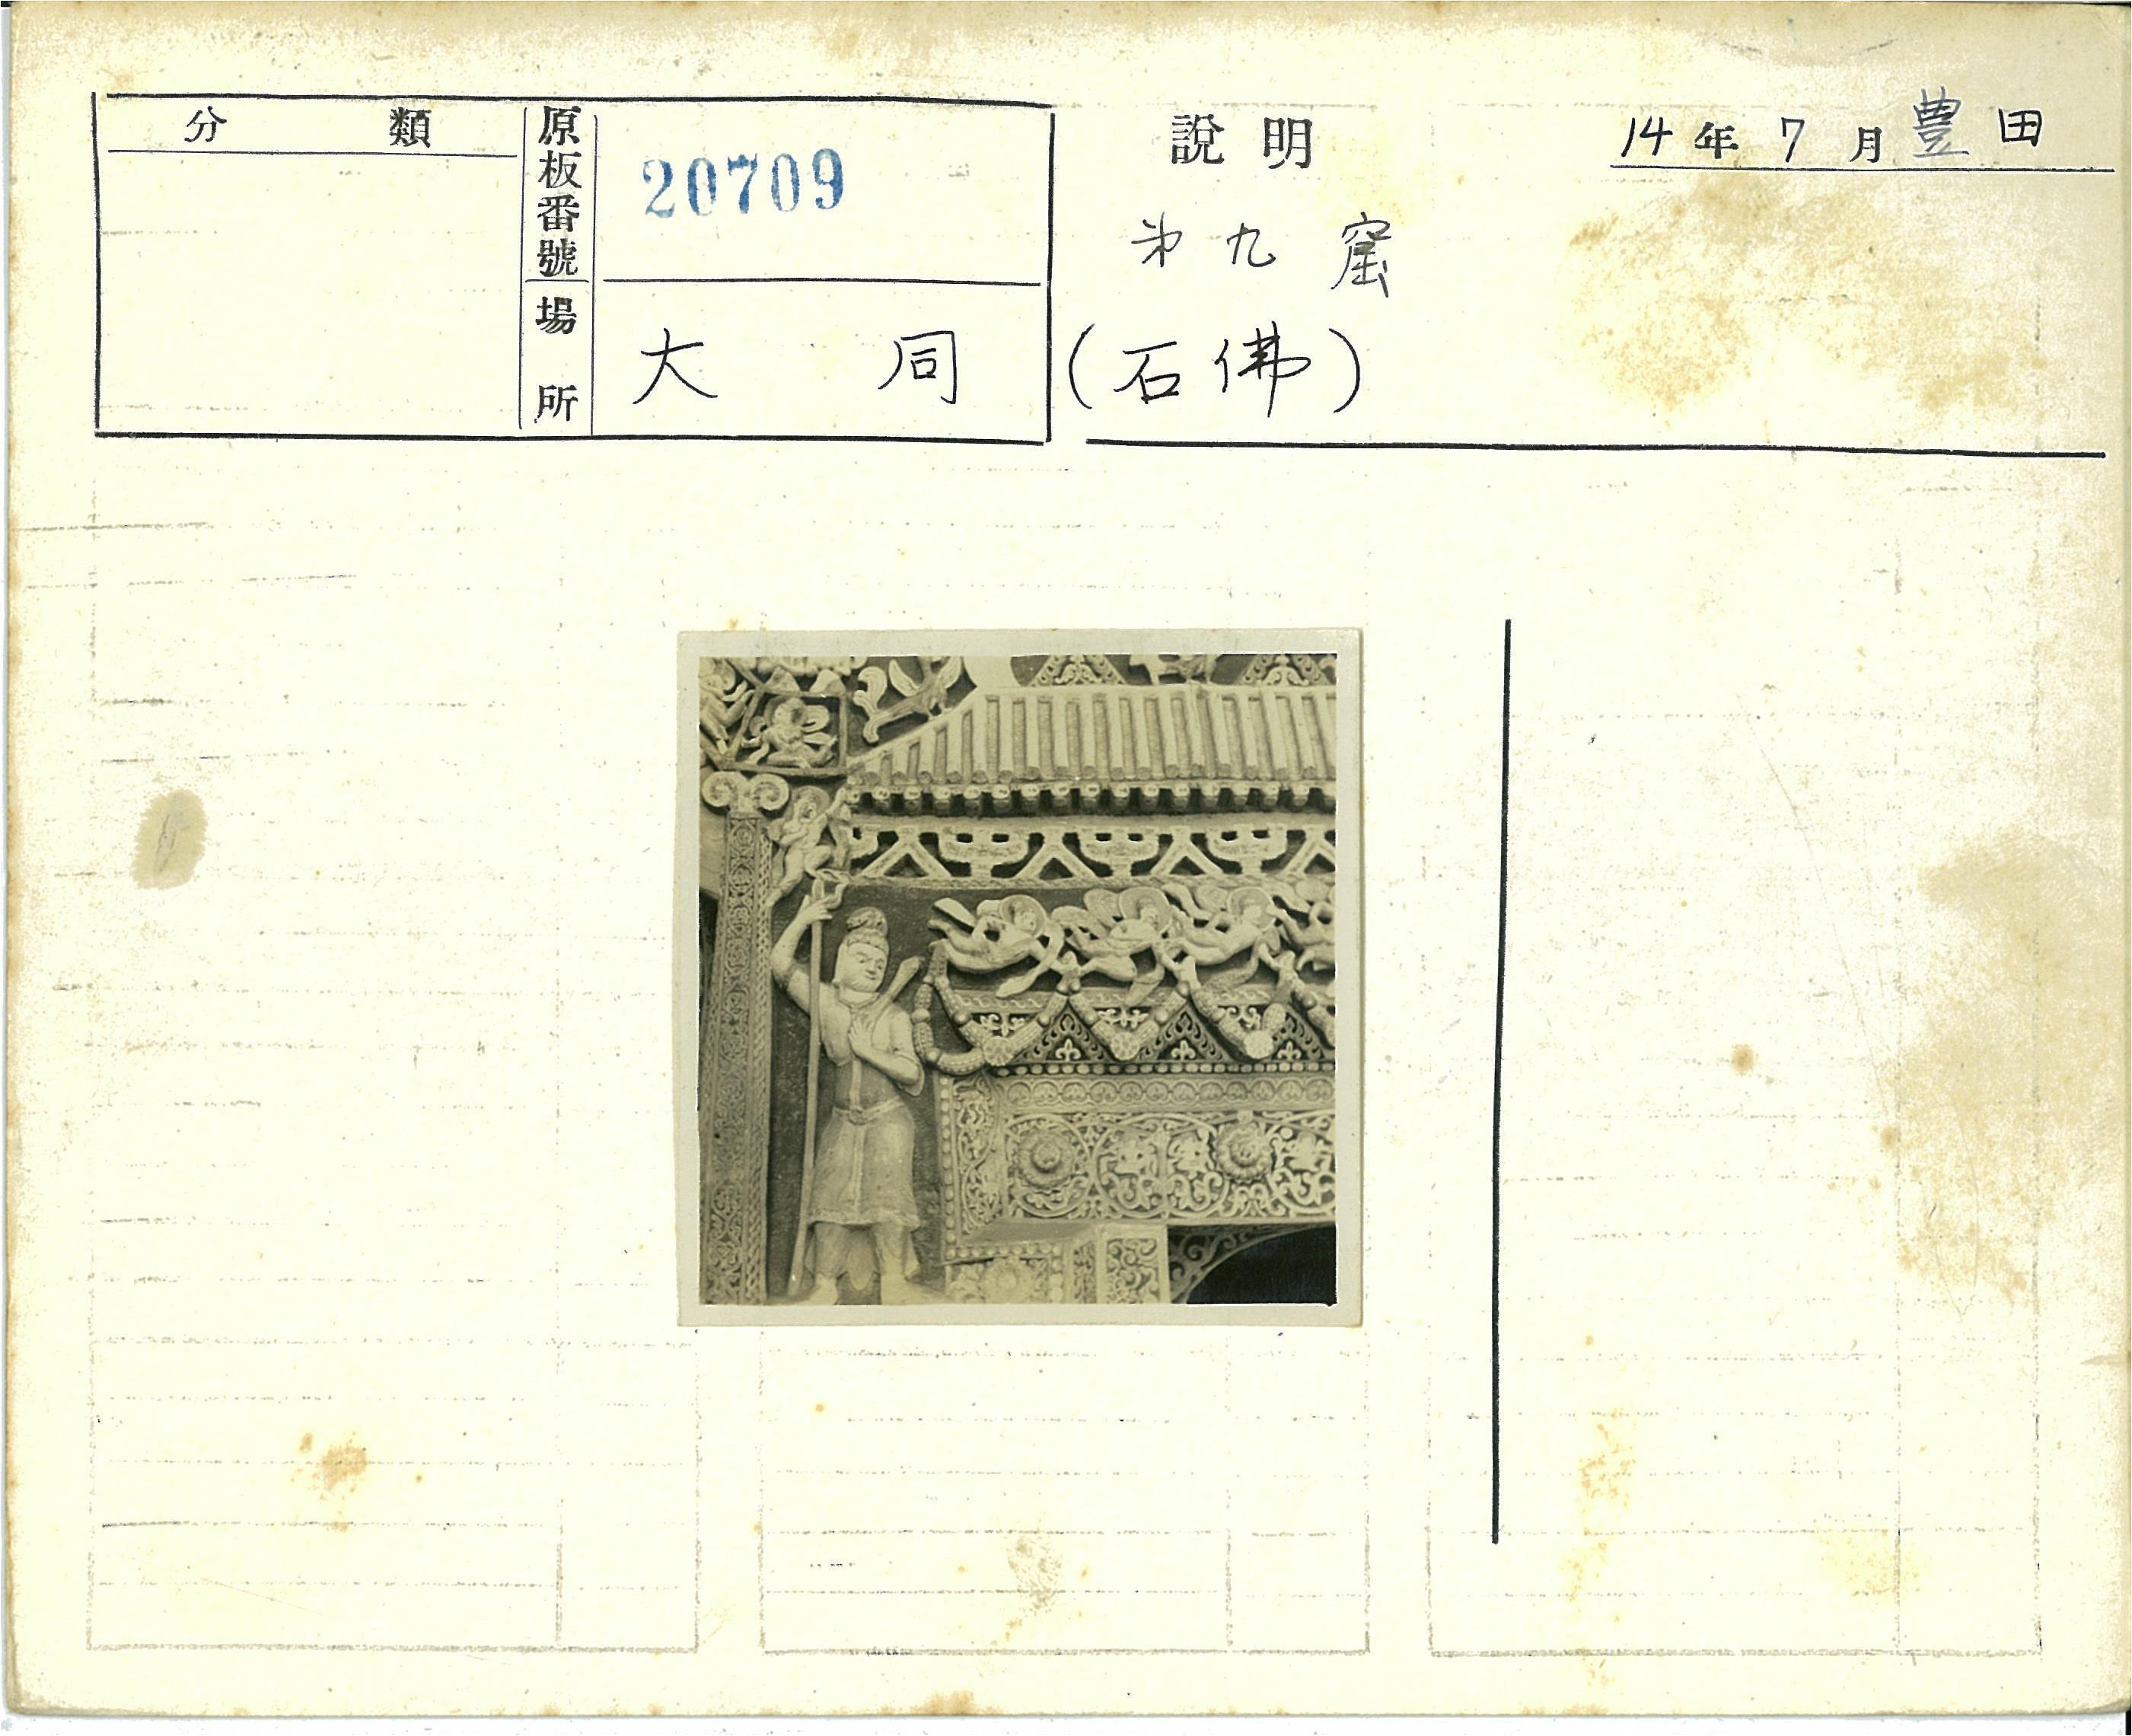 分類
原板番號
20709
場所
大同
説明
14年7月豊田
㐧九窟
(石佛)